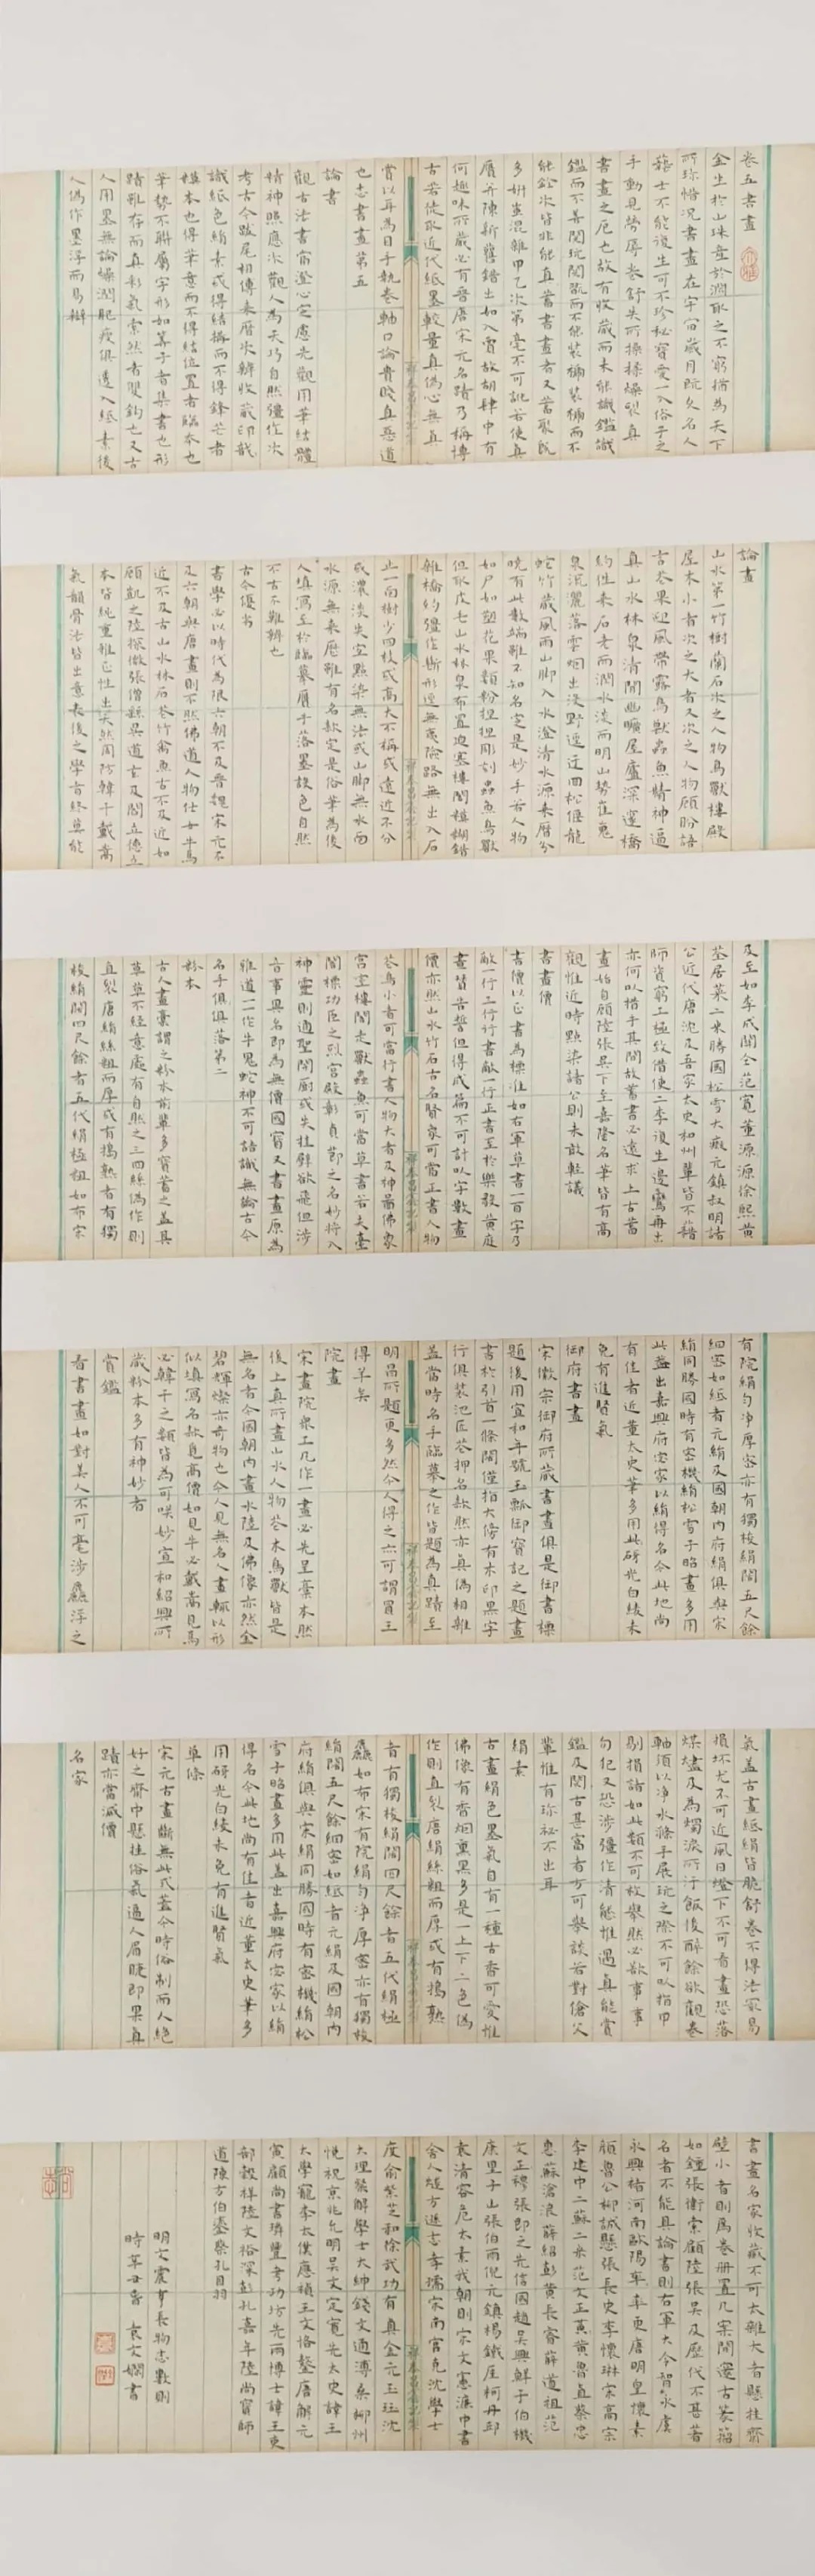 卷五書畫
金生於山珠產於淵取之不窮猶為天下
所珍惜況書畫在宇宙歲月既久名人
藝士不能復生可不珍秘寶愛一入俗子之
手動見勞辱卷舒失所操揉燥裂真
書畫之厄也故有收藏而未能識鑑識
鑑而不善閱玩閱玩而不能裝褫裝褫而不
能銓次皆非能真蓄書畫者又蓄聚既
多妍蚩混雜甲乙次第毫不可訛若使真
贗並陳新舊錯出如入賈故胡肆中有
何趣味所藏必有晉唐宋元名蹟乃稱博
古若徒取近代紙墨較量真偽心無真
賞以耳為目手執卷軸口論貴賤真惡道
也志書畫第五
論書
觀古法書當澄心定慮先觀用筆結體
精神照應次觀人為天巧自然強作次
考古今跋尾相傳來歷次辨收藏印識
識紙色絹素或得結構而不得鋒芒者
模本也得筆意而不得結位置者臨本也
筆勢不聯屬字形如算子者集書也形
蹟雖存而真彩氣索然者雙鉤也又古
人用墨無論燥潤肥瘦俱透入紙素後
人偽作墨浮而易辯
論畫
山水第一竹樹蘭石次之人物鳥獸樓殿
屋木小者次之大者又次之人物顧盼語
言花果迎風帶露鳥獸蟲魚精神逼
真山水林泉清閒幽曠屋廬深邃橋
約往來石老而潤水淡而明山勢崔嵬
泉流灑落雲烟出沒野逕迂迴松偃龍
蛇竹藏風雨山腳入水澄清水源來歷分
曉有此數端雖不知名定是妙手若人物
如尸如塑花果類粉捏雕刻蟲魚鳥獸
但取皮毛山水林泉布置迫塞樓閣模糊錯
雜橋約彊作斷形逕無夷險路無出入石
止一面樹少四枝或高大不稱或遠近不分
或濃淡失宜點染無法或山腳無水面
水源無來歷雖有名款定是俗筆為後
人填寫至於臨摹贗手落墨設色自然
不古不難辨也
古今優劣
書學必以時代為限六朝不及晉魏宋元不
及六朝與唐畫則不然佛道人物仕女牛馬
近不及古山水林石花竹禽魚古不及近如
顧凱之陸探微張僧繇吳道玄及閻立德立
本皆純重雅正性出天然周昉韓幹戴嵩
氣韻骨法皆出意表後之學者終莫能
及至如李成關仝范寬董源徐熙黃
荃居寀二米勝國松雪大癡元鎮叔明諸
公近代唐沈及吾家太史和州輩皆不藉
師資窮工極致借使二李復生邊鸞再出
亦何以措手其間故蓄書必遠求上古蓄
畫始自顧陸張吳下至嘉隆名筆皆有高
觀惟近時點染諸公則未敢輕議
書畫價
書價以正書為標准如右軍草書一百字乃
敵一行行書三行行書敵一行正書至於樂毅黃庭
畫贊告誓但得成篇不可計以字數畫
價亦然山水竹石古名賢象可當正書人物
花鳥小者可當行書人物大者及神圖佛象
宮室樓閣走獸蟲魚可當草書若夫臺
閣標功臣之烈宮殿彰貞節之名妙將入
神靈則通聖開廚或失挂壁欲飛但涉
奇事異名即為無價國寶又書畫原為
雅道一作牛鬼蛇神不可詰識無論古今
名手俱落第二
粉本
古人畫稾謂之粉本前輩多寶蓄之蓋其
草草不經意處有自然之三四絲偽作則
直裂唐絹絲粗而厚或有搗熟者有獨
梭絹闊四尺餘者五代絹極粗如布宋
有院絹勻淨厚密亦有獨梭絹闊五尺餘
細密如紙者元絹及國朝內府絹俱與宋
絹同勝國時有密機絹松雪子昭畫多用
此蓋出嘉興府宓家以絹得名今此地尚
有佳者近董太史筆多用此研光白綾未
免有進賢氣
御府書畫
宋徽宗御府所藏書畫俱是御書標
題後用宣和年號玉瓢御寶記之題畫
書於引首一條闊僅指大傍有木印黑字
行俱裝池匠花押名款然亦真偽相雜
蓋當時名手臨摹之作皆題為真蹟至
明昌所題更多然今人得之亦可謂買王
得羊矣
院畫
宋畫院眾工凡作一畫必先呈藁本然
後上真所畫山水人物花木鳥獸皆是
無名者今國朝內畫水陸及佛像亦然金
碧輝燦亦奇物也今人見無名人畫輒以形
似填寫名款覓高價如見牛必戴嵩見馬
必韓幹之類皆為可笑妙宣和紹興所
藏粉本多有神妙者
賞鑑
看書畫如對美人不可毫涉麤浮之
氣蓋古畫紙絹皆脆舒卷不得法最易
損坏尤不可近風日燈下不可看畫恐落
煤燼及為燭淚所汙飯後醉餘欲觀卷
軸須以淨水滌手展玩之際不可以指甲
剔損諸如此類不可枚舉然必欲事事
勿犯又恐涉彊作清態惟遇真能賞
鑑及閱古甚富者方可舉談若對傖父
輩惟有珍祕不出耳
絹素
古畫絹色墨氣自有一種古香可愛惟
佛像有香烟熏黑多是一上下二色偽
作則直裂唐絹絲粗而厚或有搗熟
者有獨梭絹闊四尺餘者五代絹極
麤如布宋有院絹勻淨厚密亦有獨梭
絹闊五尺餘細密如紙者元絹及國朝內
府絹俱與宋絹同勝國時有密機絹松
雪子昭畫多用此蓋出嘉興府宓家以絹
得名今此地尚有佳者近董太史筆多
用研光白綾未免有進賢氣
單條
宋元古畫斷無此式蓋今時俗制而人絕
好之齋中懸挂俗氣逼人眉睫即果真
蹟亦當減價
名家
書畫名家收藏不可太雜大者懸挂齋
壁小者則為卷冊置几案間邃古篆籀
如鍾張衛索顧陸張吳及歷代不甚著
名者不能具論書則右軍大令智永虞
永興褚河南歐陽率率更唐明皇懷素
顏魯公柳誠懸張長史李懷琳宋高宗
李建中二蘇二米范文正黃魯直蔡忠
惠蘇滄浪薛紹彭黃長睿薛道祖范
文正穆張即之先信國趙吳興鮮于伯機
康里子山張伯雨倪元鎮楊鐵厓柯丹邱
袁清容危太素我朝則宋文憲濂中書
舍人燧方遜志孝孺宋南宮克沈學士
度俞紫芝和徐武功有貞金元玉琮沈
大理粲解學士大紳錢文通溥桑柳州
悅祝京兆允明吳文定寬先太史諱王
太學寵李太僕應禎王文恪鏊唐解元
寅顧尚書璘豐考功坊先兩博士諱王吏
部穀祥陸文裕深彭孔嘉年陸尚寶師
道陳方伯鎏蔡孔目羽
明文震亨長物志數則
時辛丑春 袁文嫻書